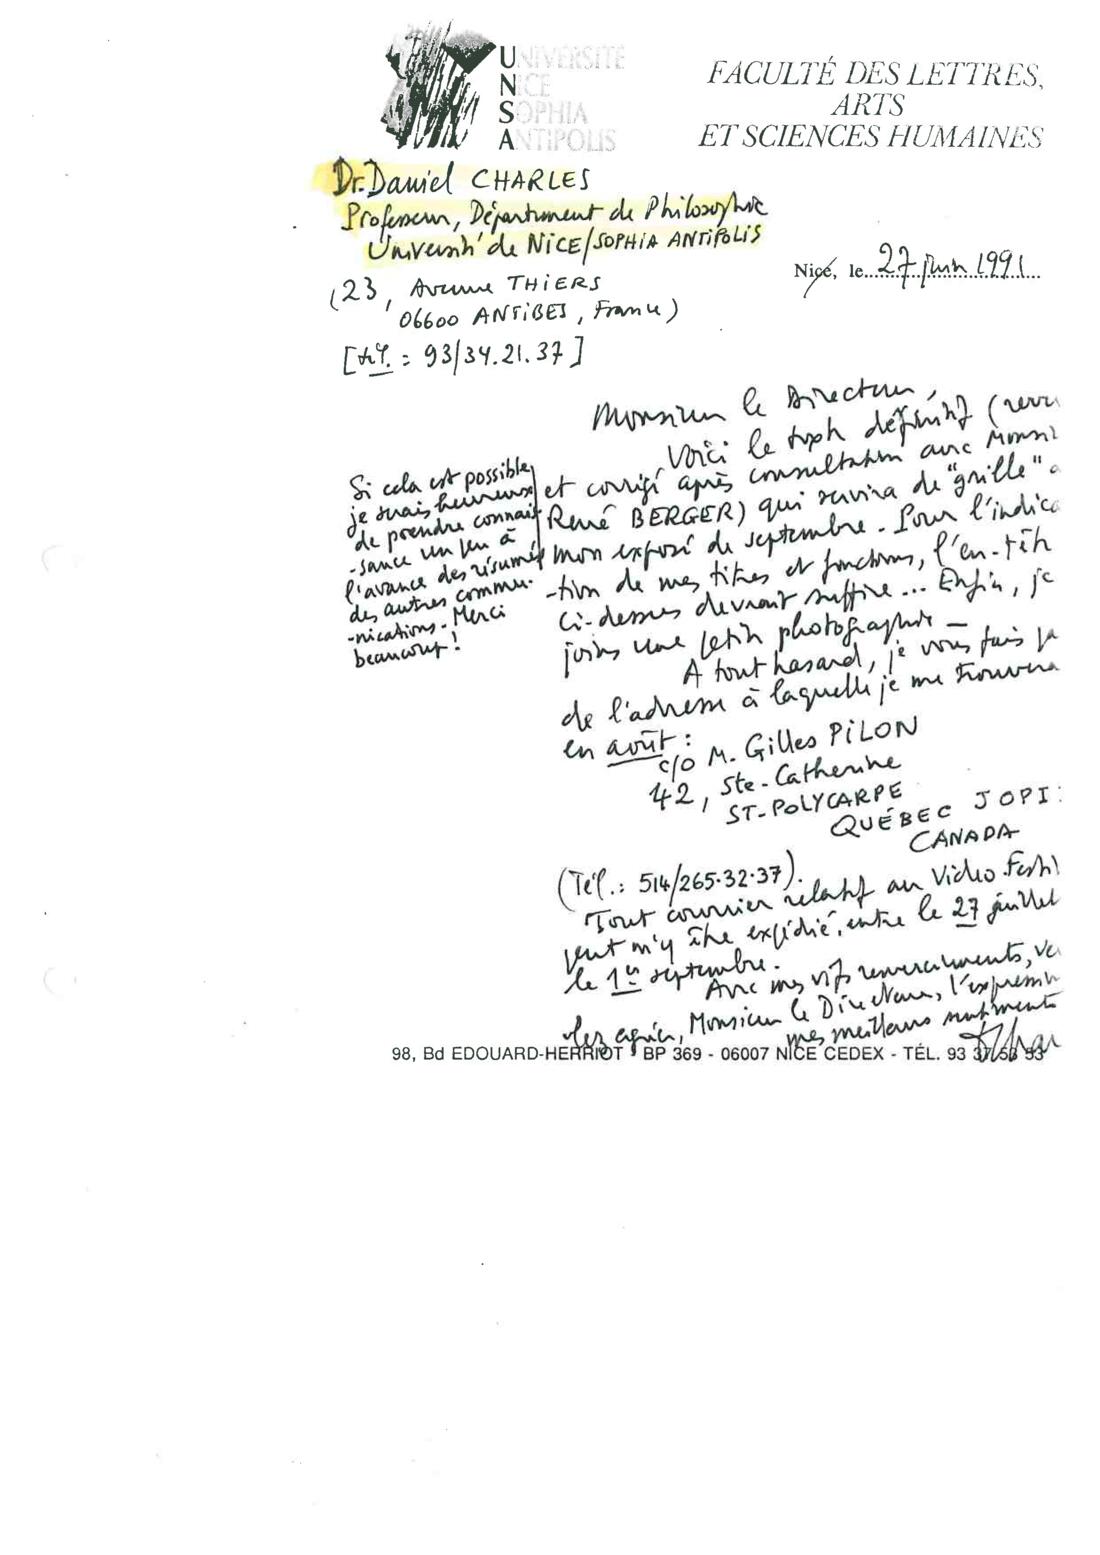 UNIVERSITÉ
NICE
SOPHIA
ANTIPOLIS
FACULTÉ DES LETTRES,
ARTS
ET SCIENCES HUMAINES
Dr. Daniel CHARLES
Professeur, Département de Philosophie
Université de NICE/SOPHIA ANTIPOLIS
(23, Avenue THIERS
06600 ANTIBES, France)
[tél. : 93/34.21.37]
Nice, le 27 juin 1991
Monsieur le Directeur,
Voici le texte définitif (revu
et corrigé après consultation avec Monsi
René BERGER) qui servira de "grille" à
mon exposé de septembre. Pour l'indica
-tion de mes titres et fonctions, l'en-têt
ci-dessus devrait suffire... Enfin, je
joins une petite photographie —
A tout hasard, je vous fais pa
de l'adresse à laquelle je me trouvera
en août :
c/o M. Gilles PILON
42, Ste-Catherine
ST-POLYCARPE
QUÉBEC JOPI
CANADA
(Tél.: 514/265.32.37).
Tout courrier relatif au Video Festi
peut m'y être expédié, entre le 27 juillet
le 1er septembre.
Avec mes vifs remerciements, ve
lez agréer, Monsieur le Directeur, l'expression
mes meilleurs sentiments
Si cela est possible,
je serais heureux
de prendre connais
-sance un peu à
l'avance des résumés
des autres commu-
-nications. Merci
beaucoup !
98, Bd EDOUARD-HERRIOT - BP 369 - 06007 NICE CEDEX - TÉL. 93 37 53 53